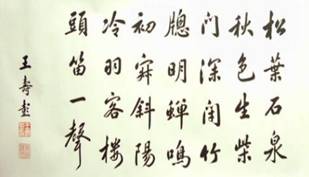 松葉石泉
秋色生柴
門深閉竹
牕明蟬鳴
初霽斜陽
冷羽客樓
頭笛一聲
王壽彭